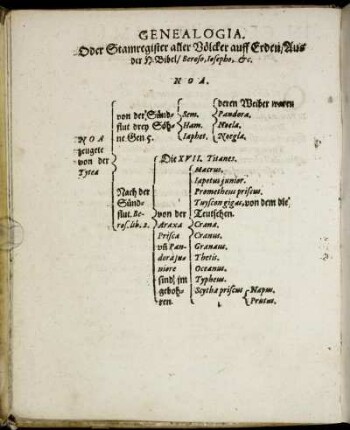 GENEALOGIA.
Oder Stamregister aller Völcker auff Erden/Aus
der H. Bibel/ Beroso, Iosepho, &c.
NOA.
NOA
zeugete
von der
Tytea
von der Sünd-
flut drey Söh-
ne. Gen 5.
Sem.
Ham.
Iaphet.
deren Weiber waren
Pandora.
Noela.
Noegla.
Nach der
Sünd-
flut. Be-
ros. lib. 2.
Die XVII. Titanes.
von der
Araxa
Prisca
vñ Pan-
dora ju-
niore
sind jm
geboh-
ren.
Macrus.
Iapetus junior.
Prometheus priscus.
Tuyscon gigas, von dem die
Teutschen.
Crana.
Cranus.
Granaus.
Thetis.
Oceanus.
Typheus.
Scytha priscus
Napus.
Prutus.